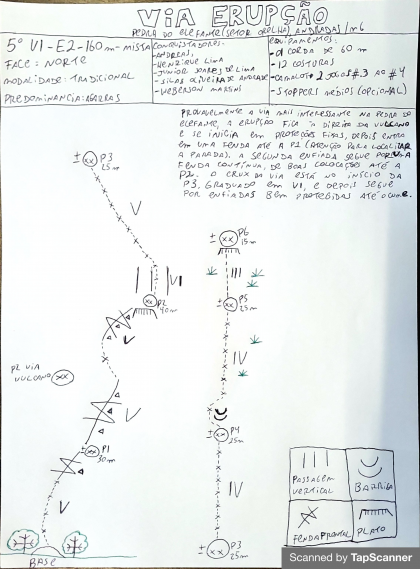 VIA ERUPÇÃO
PEDRA DO ELEFANTE (SETOR ORELHA) ANDRADAS/MG
5º VI-E2-160m-MISTA
FACE: NORTE
MODALIDADE: TRADICIONAL
PREDOMINANCIA: AGARRAS
CONQUISTADORES:
-ANDREAS,
-HENRIQUE LIMA
-JUNIOR SOARES DE LIMA
-SILAS OLIVEIRA DE ANDRADE
-WEBERSON MARTINS
EQUIPAMENTOS:
-01 CORDA DE 60 m
-12 COSTURAS
-CAMALOTS 2 JOGOS #3 AO #4
-STOPPERS MÉDIOS (OPCIONAL)
PROVAVELMENTE A VIA MAIS INTERESSANTE NA PEDRA DO
ELEFANTE, A ERUPÇÃO FICA À DIREITA DA VULCANO
E SE INICIA EM PROTEÇÕES FIXAS, DEPOIS ENTRA
EM UMA FENDA ATÉ A P1 (ATENÇÃO PARA LOCALIZAR
A PARADA). A SEGUNDA ENFIADA SEGUE POR UMA
FENDA CONTÍNUA, DE BOAS COLOCAÇÕES ATÉ A
P2. O CRUX DA VIA ESTÁ NO INÍCIO DA
P3, GRADUADO EM VI, E DEPOIS SEGUE
POR ENFIADAS BEM PROTEGIDAS ATÉ O CUME.
P3
25m
V
VI
P2
40m
V
P2 VIA
VULCANO
V
P1
30m
V
BASE
P6
15m
III
P5
25m
IV
P4
25m
IV
P3
25m
PASSAGEM
VERTICAL
BARRIGA
FENDA FRONTAL
PLATÔ
Scanned by TapScanner